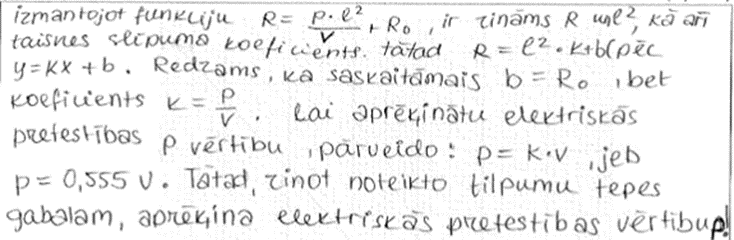 izmantojot funkciju R = p·l²/V + R₀, ir zināms R un l², kā arī
taisnes slīpuma koeficients. tātad R = l²·k+b (pēc
y=kx+b. Redzams, ka saskaitāmais b = R₀, bet
koeficients k = p/V. Lai aprēķinātu elektriskās
pretestības p vērtību, pārveido: p = k·v, jeb
p = 0,555 v. Tātad, zinot noteikto tilpumu tepes
gabalam, aprēķina elektriskās pretestības vērtību p.